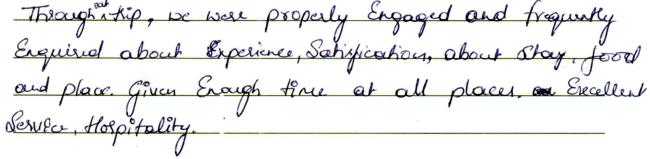 Throughout trip, we were properly Engaged and frequently
Enquired about Experience, Satisfication, about stay, food
and place. Given Enough time at all places. Excellent
Service, Hospitality.